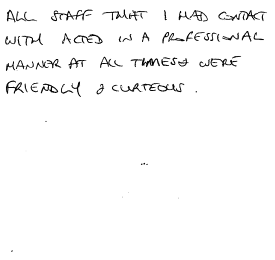 ALL STAFF THAT I HAD CONTACT
WITH ACTED IN A PROFESSIONAL
MANNER AT ALL TIMES & WERE
FRIENDLY & CURTEOUS.